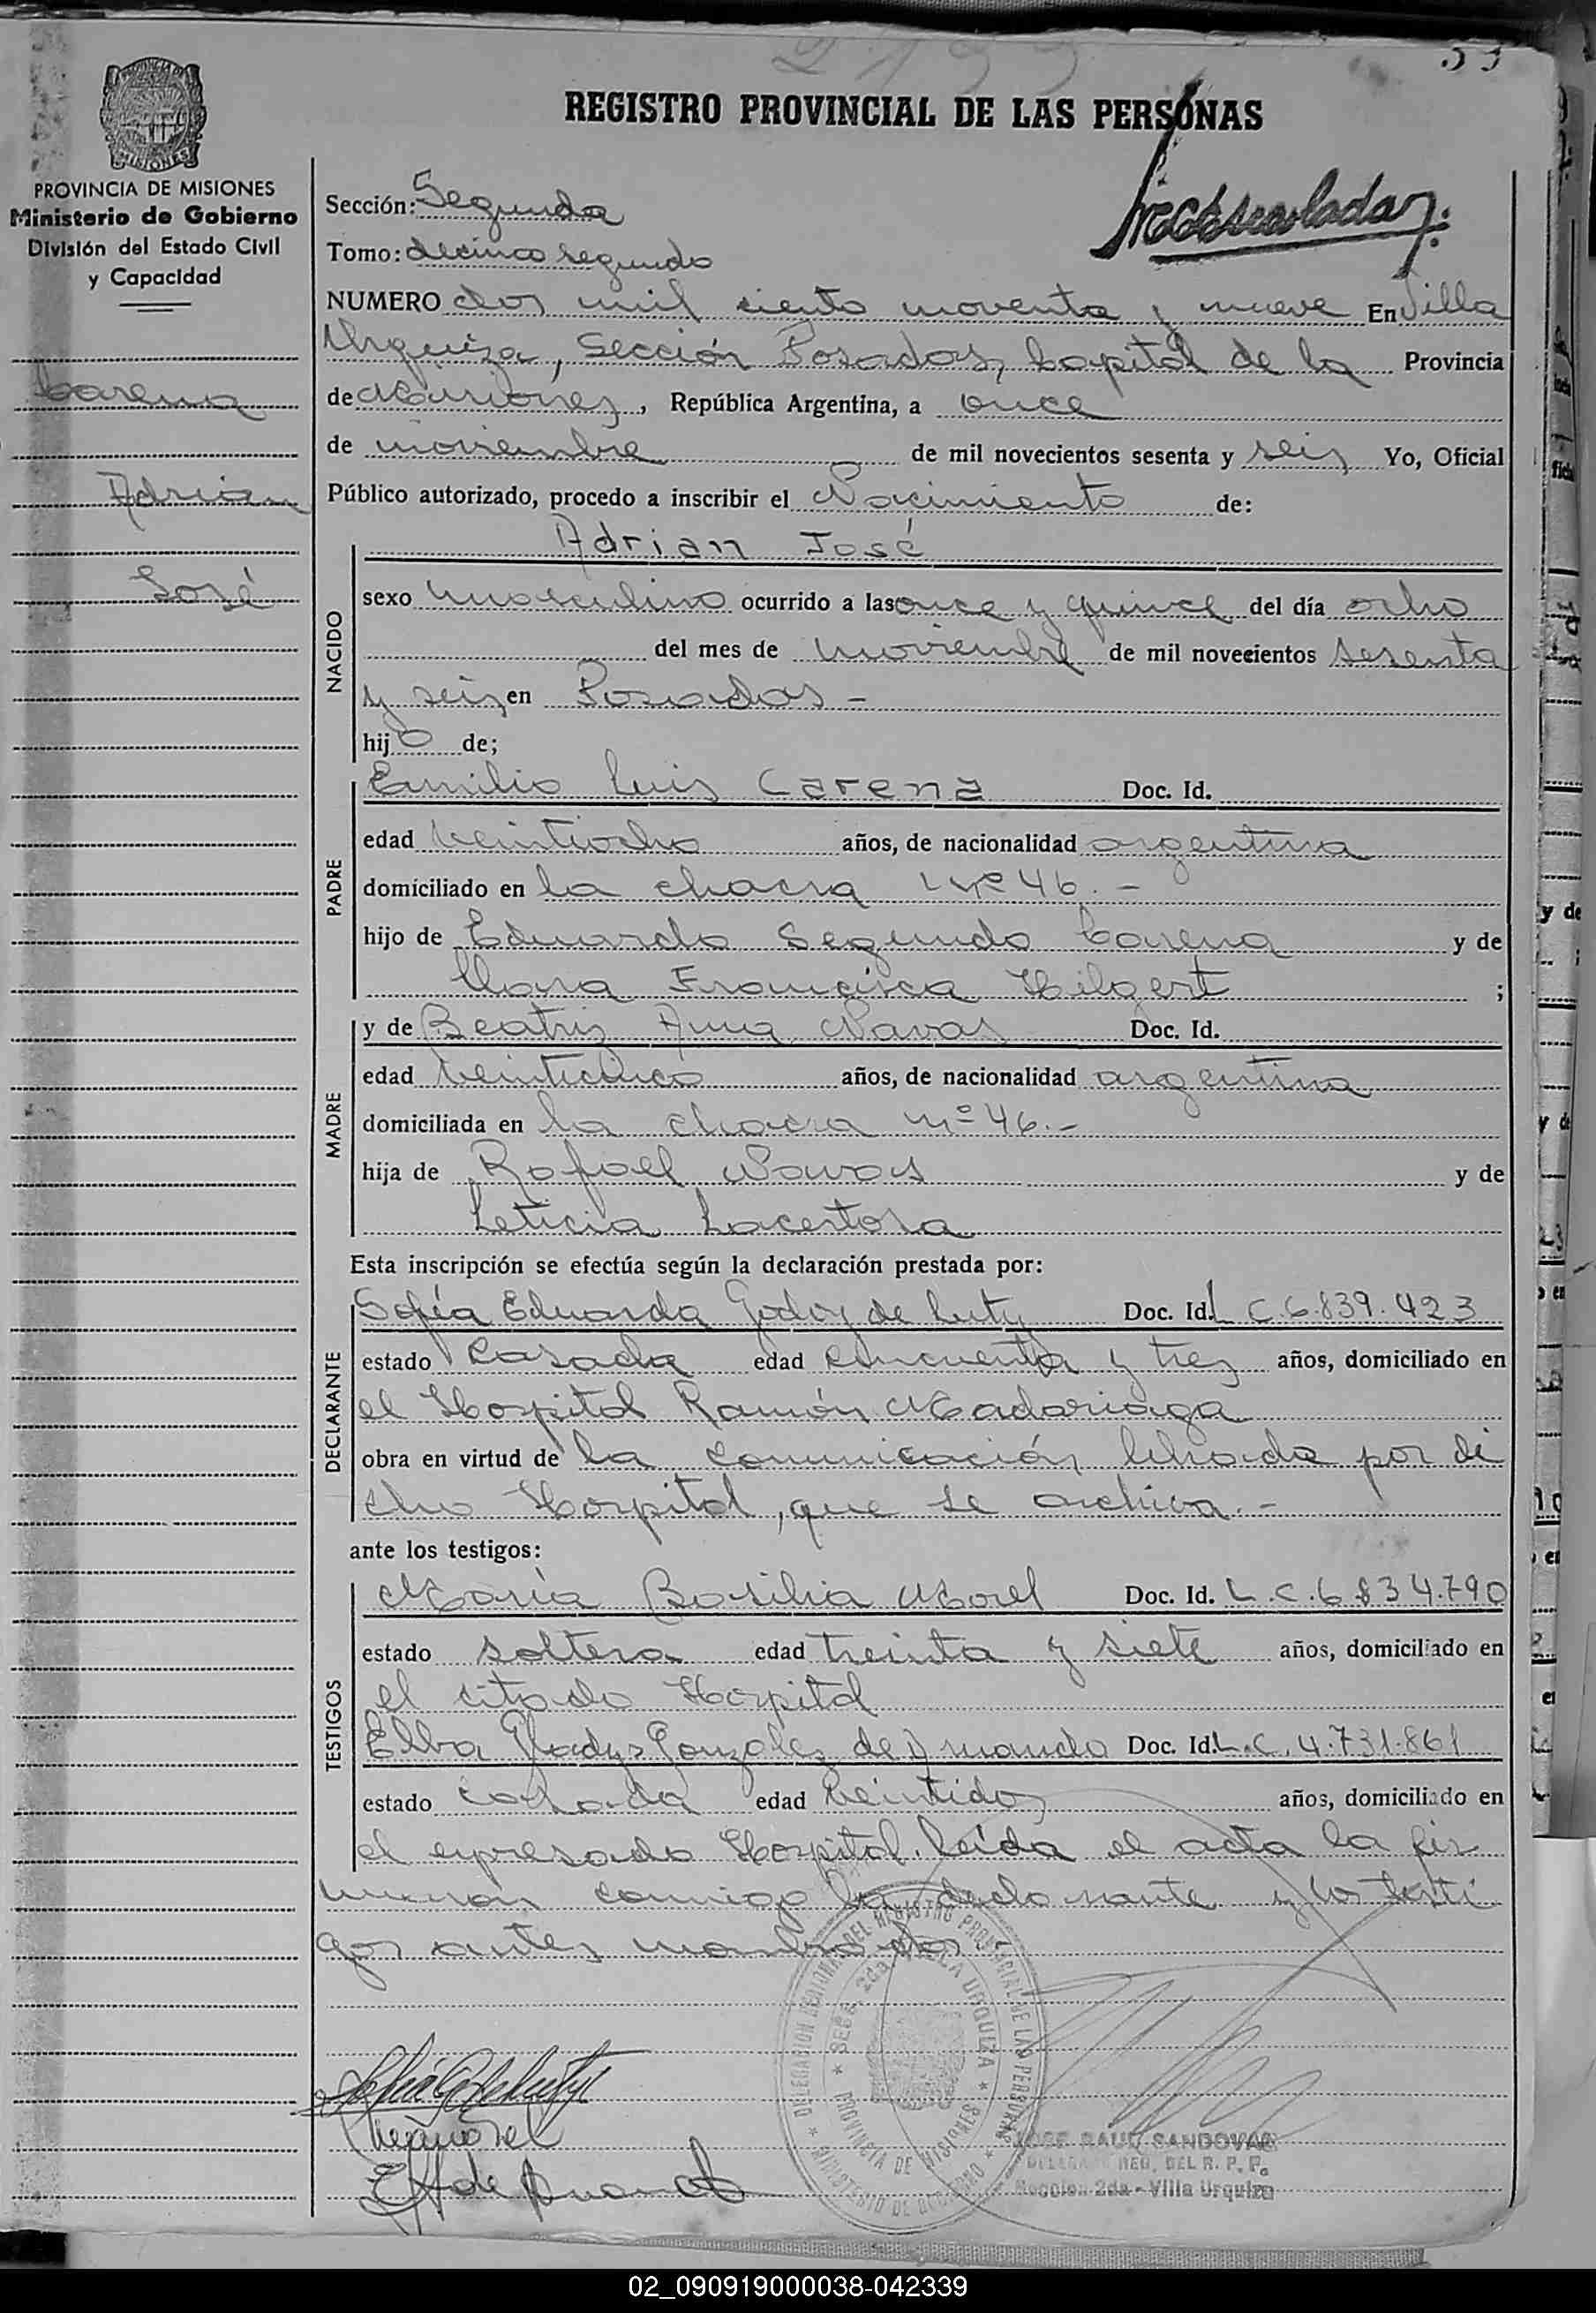 2199
REGISTRO PROVINCIAL DE LAS PERSONAS
PROVINCIA DE MISIONES
Ministerio de Gobierno
División del Estado Civil
y Capacidad
Carena
Adrian
José
Sección: Segunda
Tomo: decimo segundo
NUMERO dos mil ciento noventa y nueve En Villa
Urquiza, Sección Posadas, Capital de la Provincia
de Misiones, República Argentina, a once
de noviembre de mil novecientos sesenta y seis Yo, Oficial
Público autorizado, procedo a inscribir el Nacimiento de:
NACIDO
Adrian José
sexo masculino ocurrido a las once y quince del día ocho
del mes de noviembre de mil novecientos sesenta
y seis en Posadas -
hijo de;
PADRE
Emilio Luis Carena Doc. Id.
edad veintiocho años, de nacionalidad argentina
domiciliado en la chacra Nº 46. -
hijo de Eduardo Segundo Carena y de
Francisca Hilgert ;
MADRE
y de Beatriz Navas Doc. Id.
edad años, de nacionalidad argentina
domiciliada en la chacra nº 46.-
hija de Rafael Navas y de
Leticia Lacertosa
Esta inscripción se efectúa según la declaración prestada por:
DECLARANTE
Sofía Eduarda Godoy de Doc. Id. L C. 6.839.423
estado Casada edad cincuenta y tres años, domiciliado en
el Hospital Ramón Madariaga
obra en virtud de la comunicación librada por di
cho Hospital, que se archiva.-
ante los testigos:
TESTIGOS
María Basilia Morel Doc. Id. L.C. 6.834.790
estado soltera edad treinta y siete años, domiciliado en
el citado Hospital
Elba Gladys Gonzalez de Doc. Id. L.C. 4.731.861
estado casada edad veintidos años, domiciliado en
el expresado Hospital. Leída el acta la fir
maron conmigo la declarante y los testi
gos antes nombrados
DELEGACION REGIONAL DEL REGISTRO PROVINCIAL DE LAS PERSONAS
SECC. 2da. VILLA URQUIZA
PROVINCIA DE MISIONES
MINISTERIO DE GOBIERNO
JOSE RAUL SANDOVAL
DELEGADO REG. DEL R. P. P.
Seccion 2da - Villa Urquiza
02_090919000038-042339